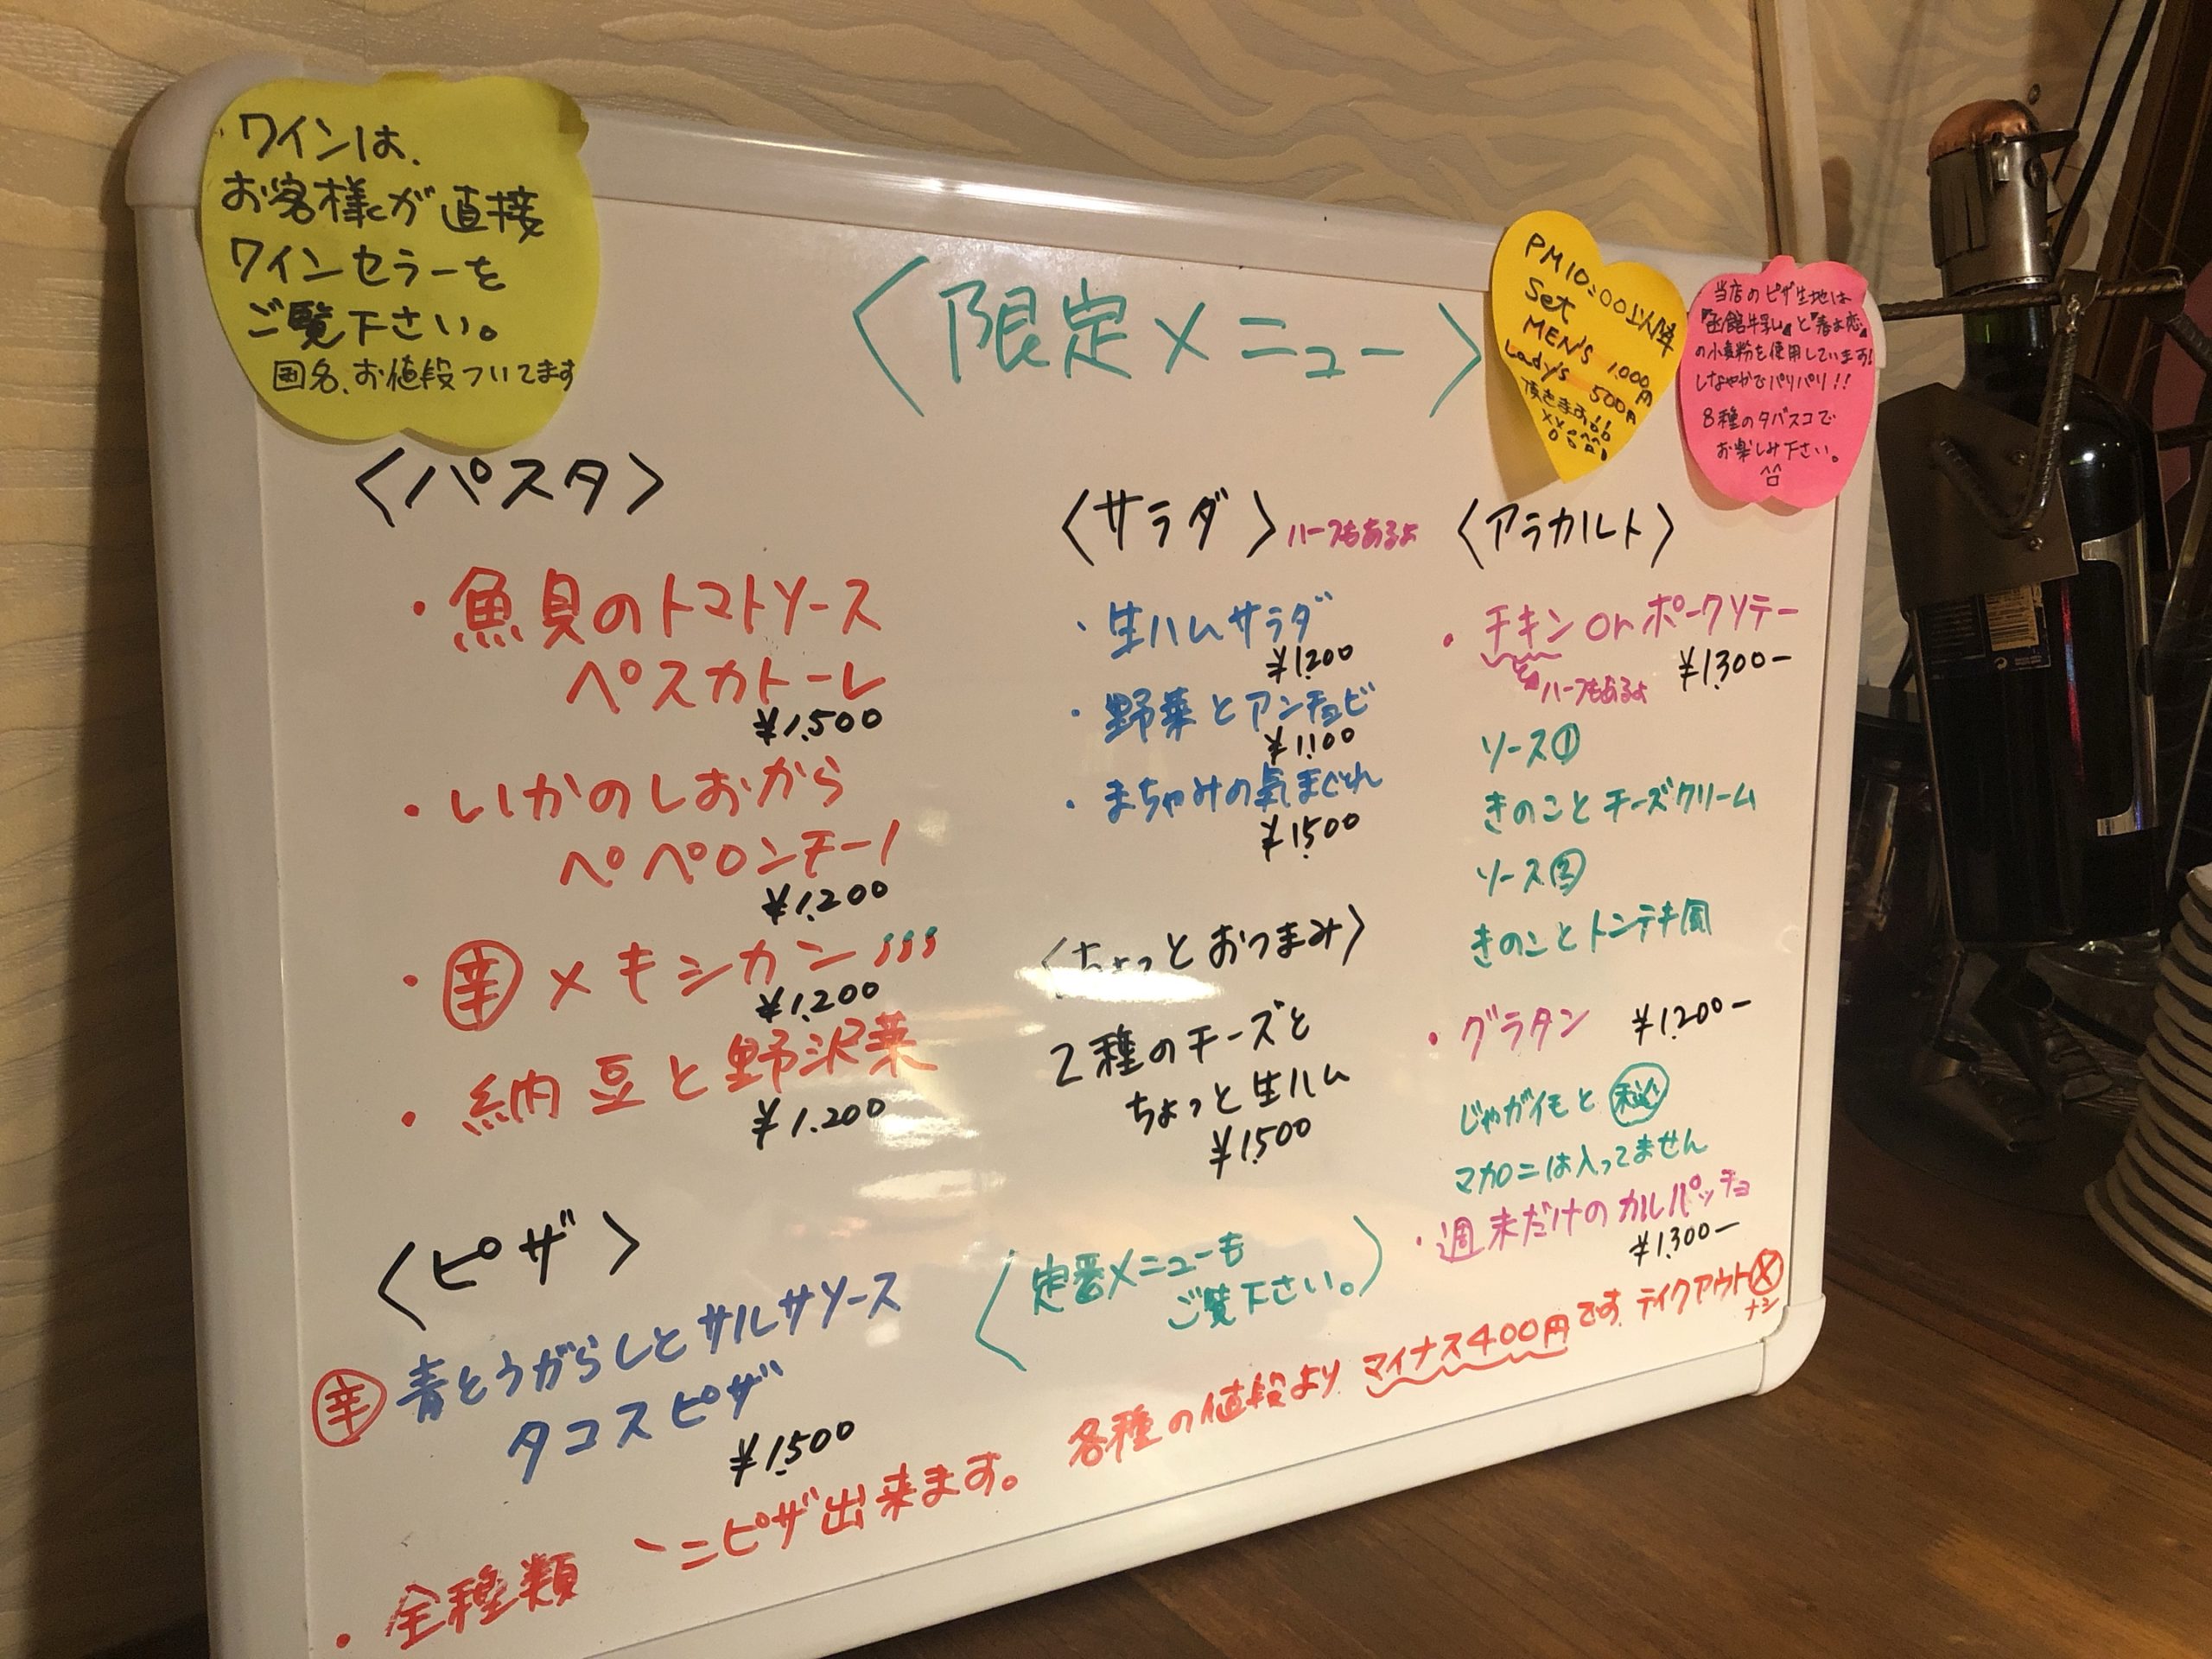 ワインは、
お客様が直接
ワインセラーを
ご覧下さい。
国名、お値段ついてます
〈限定メニュー〉
PM10:00以降
Set
MEN'S 1.000円
Lady's 500円
頂きます!!
当店のピザ生地は
『函館牛乳』と『春よ恋』
の小麦粉を使用しています!
しなやかでパリパリ!!
8種のタバスコで
お楽しみ下さい。
〈パスタ〉
・魚貝のトマトソース
ペスカトーレ
¥1.500
・いかのしおから
ペペロンチーノ
¥1.200
・辛メキシカン
¥1.200
・納豆と野沢菜
¥1.200
〈ピザ〉
辛 青とうがらしとサルサソース
タコスピザ
¥1.500
〈サラダ〉ハーフもあるよ
・生ハムサラダ
¥1200
・野菜とアンチョビ
¥1100
・まちゃみの気まぐれ
¥1500
〈ちょっとおつまみ〉
2種のチーズと
ちょっと生ハム
¥1.500
〈定番メニューも
ご覧下さい。〉
〈アラカルト〉
・チキン or ポークソテー
¥1.300ー
ハーフもあるよ
ソース①
きのことチーズクリーム
ソース②
きのことトンテキ風
・グラタン ¥1.200ー
じゃがイモと㊙
マカロニは入ってません
・週末だけのカルパッチョ
¥1.300ー
・全種類 ミニピザ出来ます。 各種の値段より マイナス400円です テイクアウトⓧ
ナシ